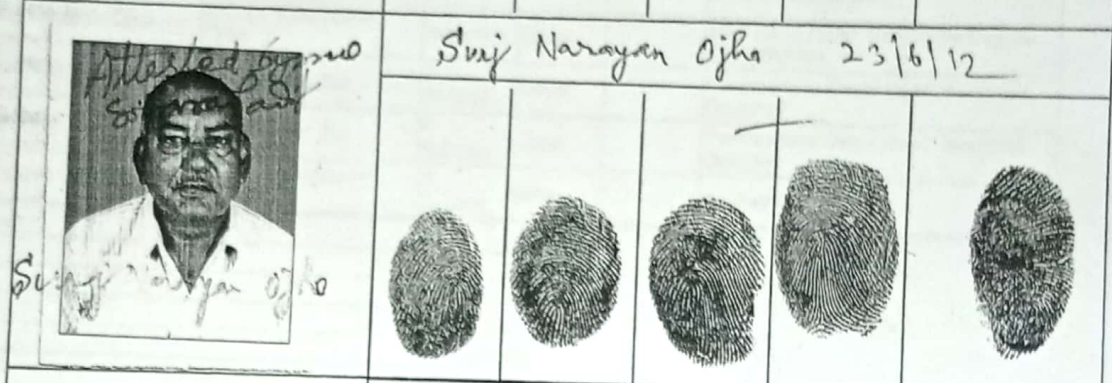 Attested by me
Surj Narayan Ojha 23/6/12
Suraj Narayan Ojha